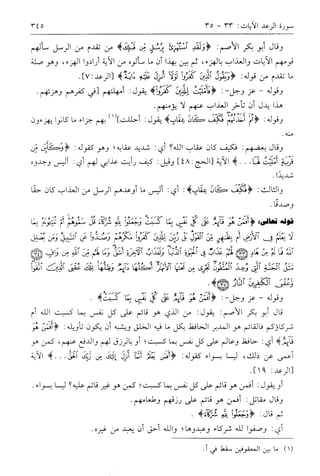 سورة الرعد الآيات: ٣٣ - ٣٥ ٣٤٥
وقال أبو بكر الأصم: ﴿وَلَقَدِ ٱسْتُهْزِئَ بِرُسُلٍ مِّن قَبْلِكَ﴾ من تقدم من الرسل سألهم
قومهم الآيات والعذاب بالهزء، ثم بين بهذا أن ما سألوه من الآية أرادوا الهزء، وهو صلة
ما تقدم من قوله: ﴿وَيَقُولُ ٱلَّذِينَ كَفَرُوا۟ لَوْلَآ أُنزِلَ عَلَيْهِ ءَايَةٌ﴾ [الرعد: ٧].
وقوله - عز وجل -: ﴿فَأَمْلَيْتُ لِلَّذِينَ كَفَرُوا۟﴾ يقول: أمهلتهم [في كفرهم وهزئهم.
هذا يدل أن تأخر العذاب عنهم لا يؤمنهم.
وقوله: ﴿ثُمَّ أَخَذْتُهُمْ فَكَيْفَ كَانَ عِقَابِ﴾ يقول: أحللت](١) بهم جزاء ما كانوا يهزءون
منه.
وقال بعضهم: فكيف كان عقاب الله؟ أي: شديد عقابه؛ وهو كقوله: ﴿وَكَأَيِّن مِّن
قَرْيَةٍ أَمْلَيْتُ لَهَا...﴾ الآية [الحج: ٤٨] وقيل: كيف رأيت عذابي لهم أي: أليس وجدوه
شديدًا.
والثالث: ﴿فَكَيْفَ كَانَ عِقَابِ﴾ أي: أليس ما أوعدهم الرسل من العذاب كان حقًا
وصدقًا.
قوله تعالى: ﴿أَفَمَنْ هُوَ قَآئِمٌ عَلَىٰ كُلِّ نَفْسٍۭ بِمَا كَسَبَتْ وَجَعَلُوا۟ لِلَّهِ شُرَكَآءَ قُلْ سَمُّوهُمْ أَمْ تُنَبِّـُٔونَهُۥ بِمَا
لَا يَعْلَمُ فِى ٱلْأَرْضِ أَم بِظَـٰهِرٍ مِّنَ ٱلْقَوْلِ بَلْ زُيِّنَ لِلَّذِينَ كَفَرُوا۟ مَكْرُهُمْ وَصُدُّوا۟ عَنِ ٱلسَّبِيلِ وَمَن يُضْلِلِ
ٱللَّهُ فَمَا لَهُۥ مِنْ هَادٍ ٣٣ لَّهُمْ عَذَابٌ فِى ٱلْحَيَوٰةِ ٱلدُّنْيَا وَلَعَذَابُ ٱلْـَٔاخِرَةِ أَشَقُّ وَمَا لَهُم مِّنَ ٱللَّهِ مِن وَاقٍ ٣٤
مَّثَلُ ٱلْجَنَّةِ ٱلَّتِى وُعِدَ ٱلْمُتَّقُونَ تَجْرِى مِن تَحْتِهَا ٱلْأَنْهَـٰرُ أُكُلُهَا دَآئِمٌ وَظِلُّهَا تِلْكَ عُقْبَى ٱلَّذِينَ ٱتَّقَوا۟
وَّعُقْبَى ٱلْكَـٰفِرِينَ ٱلنَّارُ ٣٥﴾.
وقوله - عز وجل -: ﴿أَفَمَنْ هُوَ قَآئِمٌ عَلَىٰ كُلِّ نَفْسٍۭ بِمَا كَسَبَتْ﴾.
قال أبو بكر الأصم: يقول: من الذي هو قائم على كل نفس بما كسبت الله أم
شركاؤكم فالقائم هو المدبر الحافظ بكل ما فيه الخلق ويشبه أن يكون تأويله: ﴿أَفَمَنْ هُوَ
قَآئِمٌ﴾ أي: حافظ وعالم على كل نفس بما كسبت؛ أو بالرزق لهم والدفع عنهم، كمن هو
أعمى عن ذلك، ليسا بسواء كقوله: ﴿أَفَمَن يَعْلَمُ أَنَّمَآ أُنزِلَ إِلَيْكَ مِن رَّبِّكَ ٱلْحَقُّ...﴾ الآية
[الرعد: ١٩].
أو يقول: أفمن هو قائم على كل نفس بما كسبت؛ كمن هو غير قائم عليه؟ ليسا بسواء.
وقال مقاتل: أفمن هو قائم على رزقهم وطعامهم.
ثم قال: ﴿وَجَعَلُوا۟ لِلَّهِ شُرَكَآءَ﴾.
أي: وصفوا لله شركاء وعبدوها؛ والله أحق أن يعبد من غيره.
(١) ما بين المعقوفين سقط في أ.